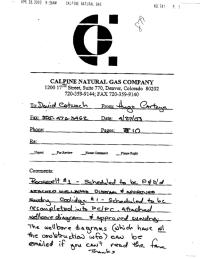 APR. 28. 2003 9:38AM CALPINE NATURAL GAS NO. 781 P. 1
CALPINE NATURAL GAS COMPANY
1200 17th Street, Suite 770, Denver, Colorado 80202
720-359-9144; FAX 720-359-9140
To: David Catanach From: Hugo Cartaya
Fax: 505-476-3462 Date: 4/28/03
Phone: Pages: 10
Re:
Urgent For Review Please Comment Please Reply
Comments:
Roosevelt #1 - Scheduled to be P'd/d
ATTACHED WELLBORE DIAGRAM & APPROVED
Sundry. Coolidge #1 - Scheduled to be
recompleted into PC/FC. Attached
wellbore diagram & approved sundry.
The wellbore diagrams (which have all
the construction info) can be
emailed if you can't read the fax
Thanks